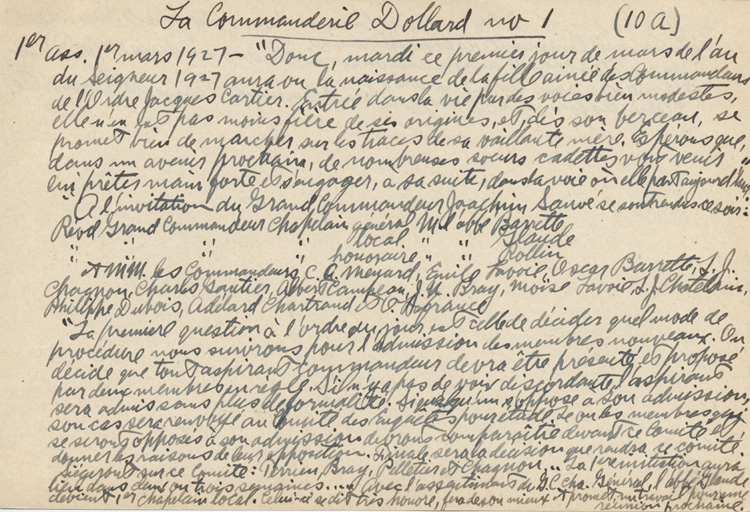 La Commanderie Dollard no 1 (10a)
1er ass. 1er mars 1927 - "Donc, mardi ce premier jour de mars de l'an
du Seigneur 1927 aura vu la naissance de la fille ainée des Commanderies
de l'Ordre Jacques Cartier. Entrée dans la vie par des voies bien modestes,
elle n'en est pas moins fière de ses origines, et, dès son berceau, se
promet bien de marcher sur les traces de sa vaillante mère. Espérons que,
dans un avenir prochain, de nombreuses soeurs cadettes vont venir
lui prêter main forte et s'engager, à sa suite, dans la voie où elle part aujourd'hui."
"A l'invitation du Grand Commandeur Joachim Sauvé se sont rendus ce soir:
Révd Grand Commandeur Chapelain général, M. l'abbé Barrette
" " " " local, " " Glaude
" " " " honoraire, " " Rollin
"A MM. les Commandeurs C. A. Ménard, Emile Lavoie, Oscar Barrette, L. J.
Chagnon, Charles Gautier, Albert Campeau, J. U. Bray, Moïse Lavoie, L. J. Chatelain,
Philippe Dubois, Adélard Chartrand et O. Lafrance
"La première question à l'ordre du jour est celle de décider quel mode de
procédure nous suivrons pour l'admission des membres nouveaux. On
décide que tout aspirant commandeur devra être présenté et proposé
par deux membres en règle. S'il n'y a pas de voix discordante, l'aspirant
sera admis sans plus de formalité. Si quelqu'un s'oppose à son admission,
son cas sera renvoyé au Comité des Enquêtes pour étude. Le ou les membres qui
se seront opposés à son admission devront comparaître devant ce Comité et
donner les raisons de leur opposition. Finale sera la décision que rendra ce comité.
Siègeront sur ce Comité: Terrien, Bray, Pelletier et Chagnon... La 1ère initiation aura
lieu dans deux ou trois semaines... Avec l'assentiment du G. C. cha. Général, l'abbé Glaude
devient 1er chapelain local. Celui-ci se dit très honoré, fera de son mieux et promet
réunion prochaine.